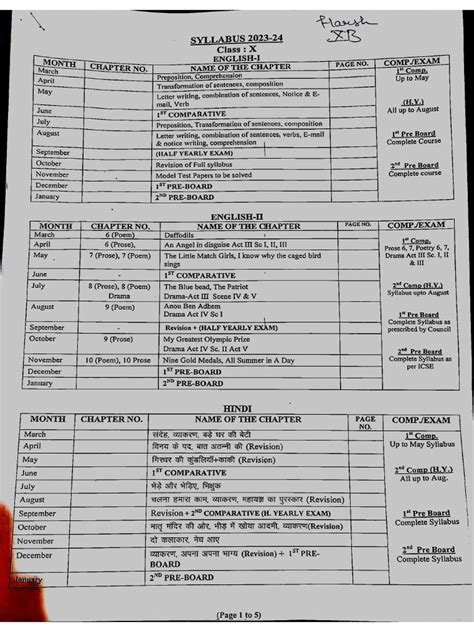 Harsh
XB
SYLLABUS 2023-24
Class : X
ENGLISH-I
MONTH CHAPTER NO. NAME OF THE CHAPTER PAGE NO. COMP./EXAM
March Preposition, Comprehension 1st Comp.
April Transformation of sentences, composition Up to May
May Letter writing, combination of sentences, Notice & E-
mail, Verb (H.Y.)
June 1ST COMPARATIVE All up to August
July Preposition, Transformation of sentences, composition
August Letter writing, combination of sentences, verbs, E-mail 1st Pre Board
& notice writing, comprehension Complete Course
September (HALF YEARLY EXAM)
October Revision of Full syllabus 2nd Pre Board
November Model Test Papers to be solved Complete course
December 1ST PRE-BOARD
January 2ND PRE-BOARD
ENGLISH-II
MONTH CHAPTER NO. NAME OF THE CHAPTER PAGE NO. COMP./EXAM
March 6 (Poem) Daffodils 1st Comp.
April 6 (Prose), An Angel in disguise Act III Sc I, II, III Prose 6, 7, Poetry 6, 7,
May 7 (Prose), 7 (Poem) The Little Match Girls, I know why the caged bird Drama Act III Sc. I, II
sings & III
June - 1ST COMPARATIVE
July 8 (Prose), 8 (Poem) The Blue bead, The Patriot 2nd Comp (H.Y.)
Drama Drama-Act III Scene IV & V Syllabus upto August
August 9 (Poem) Anou Ben Adhem
Drama Act IV Sc I 1st Pre Board
September - Revision + (HALF YEARLY EXAM) Complete Syllabus as
October 9 (Prose) My Greatest Olympic Prize prescribed by Council
Drama Act IV Sc. II Act V 2nd Pre Board
November 10 (Poem), 10 Prose Nine Gold Medals, All Summer in A Day Complete Syllabus as
December 1ST PRE-BOARD per ICSE
January 2ND PRE-BOARD
HINDI
MONTH CHAPTER NO. NAME OF THE CHAPTER PAGE NO. COMP./EXAM
March संदेह, व्याकरण, बड़े घर की बेटी 1st Comp.
April विनय के पद, बात अठन्नी की (Revision) Up to May Syllabus
May गिरधर की कुंडलियाँ+काकी (Revision)
June 1ST COMPARATIVE 2nd Comp (H.Y.)
July भेड़े और भेड़िए, भिक्षुक All up to Aug.
August चलना हमारा काम, व्याकरण, महायज्ञ का पुरस्कार (Revision)
September Revision + 2ND COMPARATIVE (H. YEARLY EXAM) 1st Pre Board
October मातृ मंदिर की ओर, भीड़ में खोया आदमी, व्याकरण(Revision) Complete Syllabus
November दो कलाकार, मेघ आए
December व्याकरण, अपना अपना भाग्य (Revision) + 1ST PRE- 2nd Pre Board
BOARD Complete Syllabus
January 2ND PRE-BOARD
(Page 1 to 5)